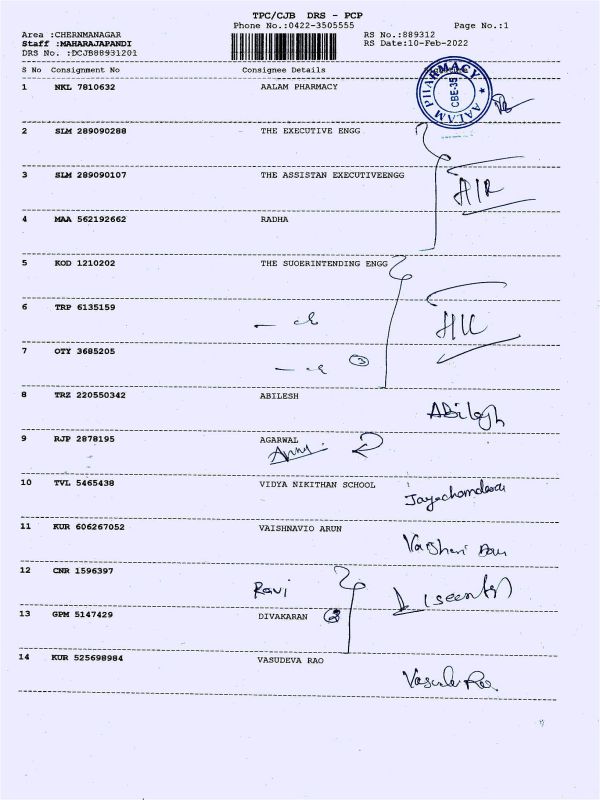 TPC/CJB DRS - PCP
Phone No.:0422-3505555 Page No.:1
Area :CHERNMANAGAR RS No.:889312
Staff :MAHARAJAPANDI RS Date:10-Feb-2022
DRS No. :DCJB88931201
S No Consignment No Consignee Details
1 NKL 7810632 AALAM PHARMACY
AALAM PHARMACY CBE-35
2 SLM 289090288 THE EXECUTIVE ENGG
3 SLM 289090107 THE ASSISTAN EXECUTIVEENGG
4 MAA 562192662 RADHA
5 KOD 1210202 THE SUOERINTENDING ENGG
6 TRP 6135159
7 OTY 3685205
3
8 TRZ 220550342 ABILESH
Abilesh
9 RJP 2878195 AGARWAL
10 TVL 5465438 VIDYA NIKITHAN SCHOOL
11 KUR 606267052 VAISHNAVIO ARUN
12 CNR 1596397 Ravi
13 GPM 5147429 DIVAKARAN
14 KUR 525698984 VASUDEVA RAO